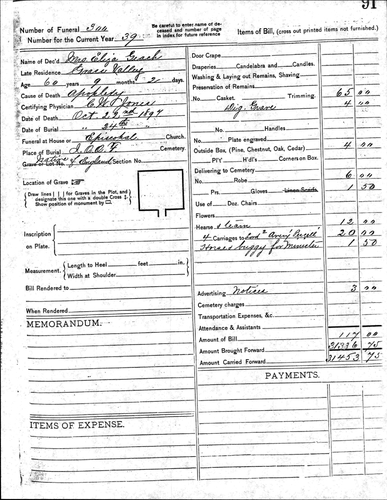 91
Number of Funeral 300
Number for the Current Year 39
Be careful to enter name of deceased and number of page in index for future reference
Items of Bill, (cross out printed items not furnished.)
Name of Dec'd. Mrs. Eliza
Late Residence Grass Valley
Age 60 years 9 months 2 days.
Cause of Death Apoplexy
Certifying Physician C W Jones
Date of Death Oct 22nd 1897
Date of Burial " 24th " "
Funeral at House or Episcobal Church.
Place of Burial I.O.O.F. Cemetery.
Grave or Lot No. Native of England Section No.
Location of Grave
Draw lines for Graves in the Plot, and designate this one with a double Cross
Show position of monument by
Inscription on Plate.
Measurement. Length to Heel feet in.
Width at Shoulder
Bill Rendered to
When Rendered
MEMORANDUM.
ITEMS OF EXPENSE.
Door Crape
Draperies Candelabra and Candles.
Washing & Laying out Remains, Shaving
Preservation of Remains 65 00
No. Casket. Trimming. 4 00
Dig. Grave
No. Handles
Plate engraved
Outside Box, (Pine, Chestnut, Oak, Cedar) 4 00
PIY H'dl's Corners on Box.
Delivering to Cemetery 6 00
No. Robe
Prs. Gloves Linen Scarfs 1 50
Use of Doz. Chairs
Flowers
Hearse & team 12 00
4 Carriages to 20 00
Horse & buggy for Minister 1 50
Advertising Notices 3 00
Cemetery charges
Transportation Expenses, &c
Attendance & Assistants
Amount of Bill 117 00
Amount Brought Forward 21336 75
Amount Carried Forward 21453 75
PAYMENTS.